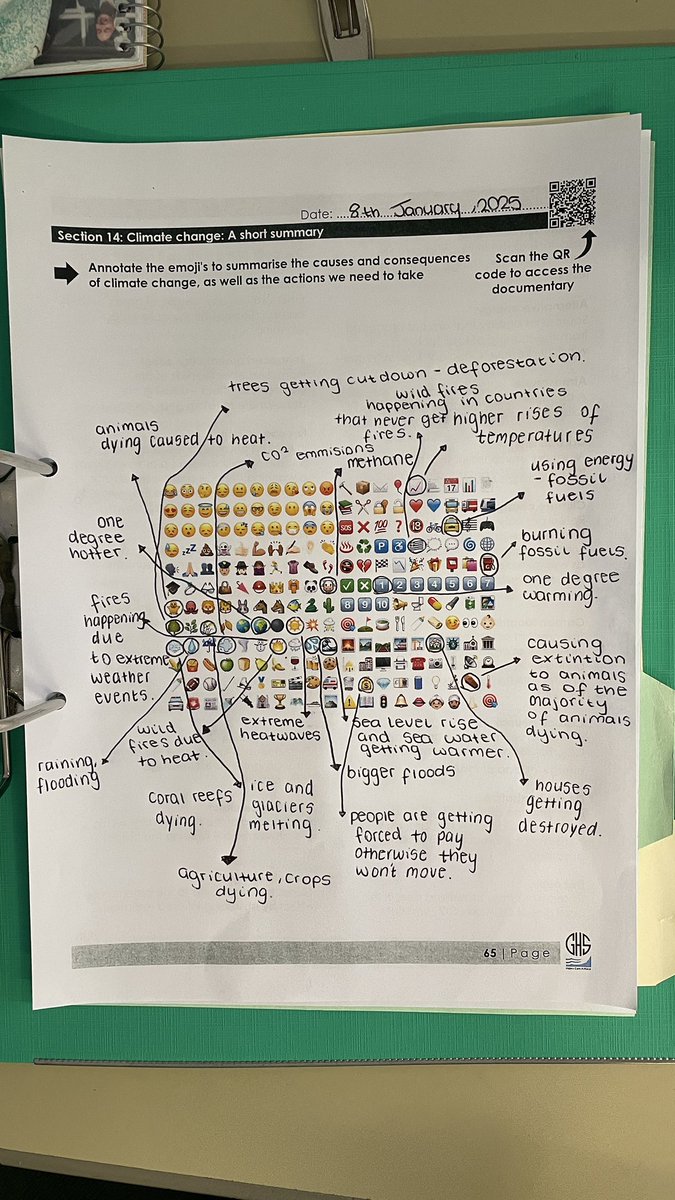 Date: 8th January, 2025
Section 14: Climate change: A short summary
Annotate the emoji's to summarise the causes and consequences
of climate change, as well as the actions we need to take
Scan the QR
code to access the
documentary
trees getting cutdown - deforestation.
wild fires
happening in countries
that never get
fires.
higher rises of
temperatures
animals
dying caused to heat.
CO² emmisions
methane
using energy
- fossil
fuels
one
degree
hotter.
burning
fossil fuels.
one degree
warming.
fires
happening
due
to extreme
weather
events.
causing
extintion
to animals
as of the
majority
of animals
dying.
wild
fires due
to heat.
extreme
heatwaves
sea level rise
and sea water
getting warmer.
raining,
flooding
bigger floods
coral reefs
dying.
ice and
glaciers
melting.
houses
getting
destroyed.
people are getting
forced to pay
otherwise they
won't move.
agriculture, crops
dying.
65 | Page
GHS